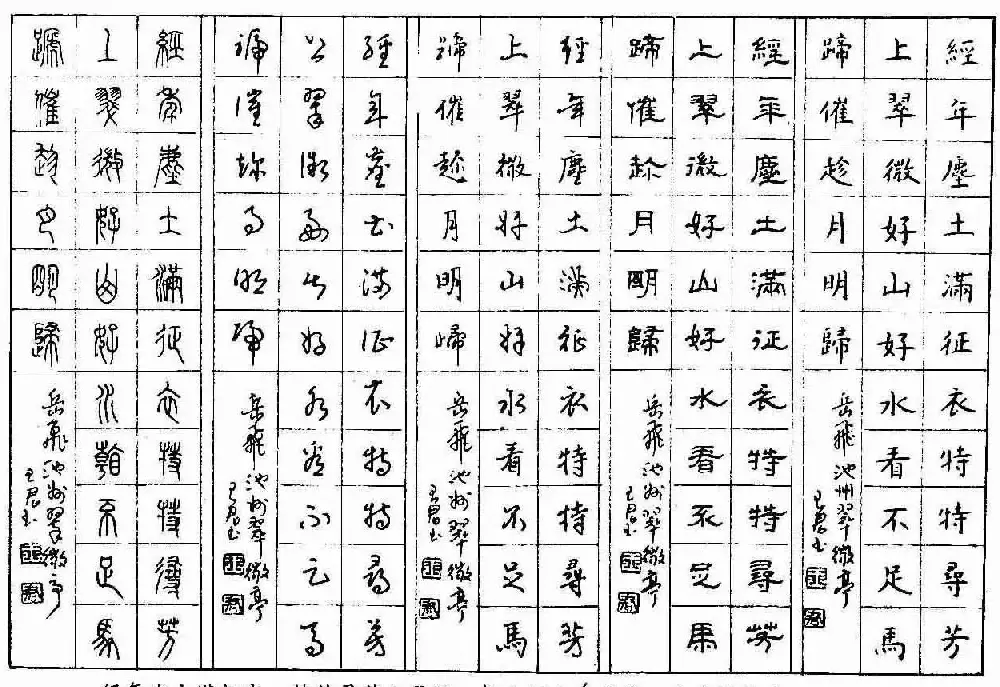 經年塵土滿征衣特特尋芳
上翠微好山好水看不足馬
蹄催趁月明歸
岳飛池州翠微亭
王君书
經年塵土滿征衣特特尋芳
上翠微好山好水看不足馬
蹄催趁月明歸
岳飛池州翠微亭
王君书
經年塵土滿征衣特特尋芳
上翠微好山好水看不足馬
蹄催趁月明歸
岳飛池州翠微亭
王君书
經年塵土滿征衣特特尋芳
上翠微好山好水看不足馬
蹄催趁月明歸
岳飛池州翠微亭
王君书
經年塵土滿征衣特特尋芳
上翠微好山好水看不足馬
蹄催趁月明歸
岳飛池州翠微亭
王君书